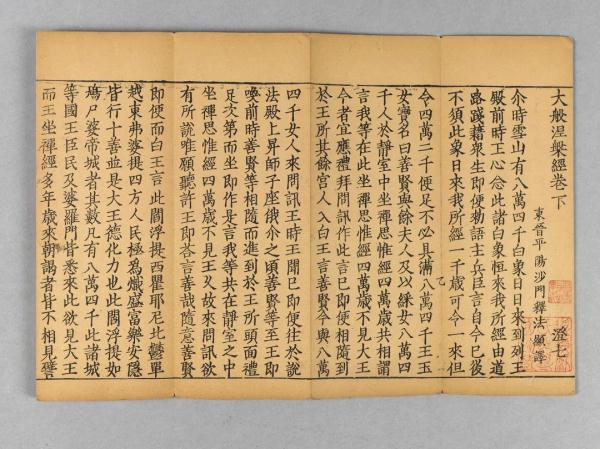 大般涅槃經卷下
澄七
東晉平陽沙門釋法顯譯
尒時雪山有八萬四千白象日日來到列王
殿前時王心念此諸白象恒來我所經由道
路踐藉衆生即便勑語主兵臣言自今已後
不須此象日來我所經一千歳可令一來但
令四萬二千便足不必具滿八萬四千王玉
女寳名曰善賢與餘夫人及以綵女八萬四
千人於靜室中坐禪思惟經四萬歳共相謂
言我等在此坐禪思惟經四萬歳不見大王
今者宜應禮拜問訊作此言已即便相隨到
於王所其餘宮人入白王言善賢今與八萬
四千女人來問訊王時王聞已即便往於說
法殿上昇師子座俄介之頃善賢等至王即
喚前時善賢等相隨而進到於王所頭面禮
足次第而坐即作是言我等共在靜室之中
坐禪思惟經四萬歳不見王久故來問訊欲
有所說唯願聽許王即荅言善哉隨意善賢
即便而白王言此閻浮提西瞿耶尼北欝單
越東弗婆提四方人民極為熾盛富樂安隱
皆行十善並是大王德化力也此閻浮提如
鳩尸婆帝城者其數凡有八萬四千此諸城
等國王臣民及婆羅門皆悉來此欲見大王
而王坐禪經多年歳來朝謁者皆不相見譬